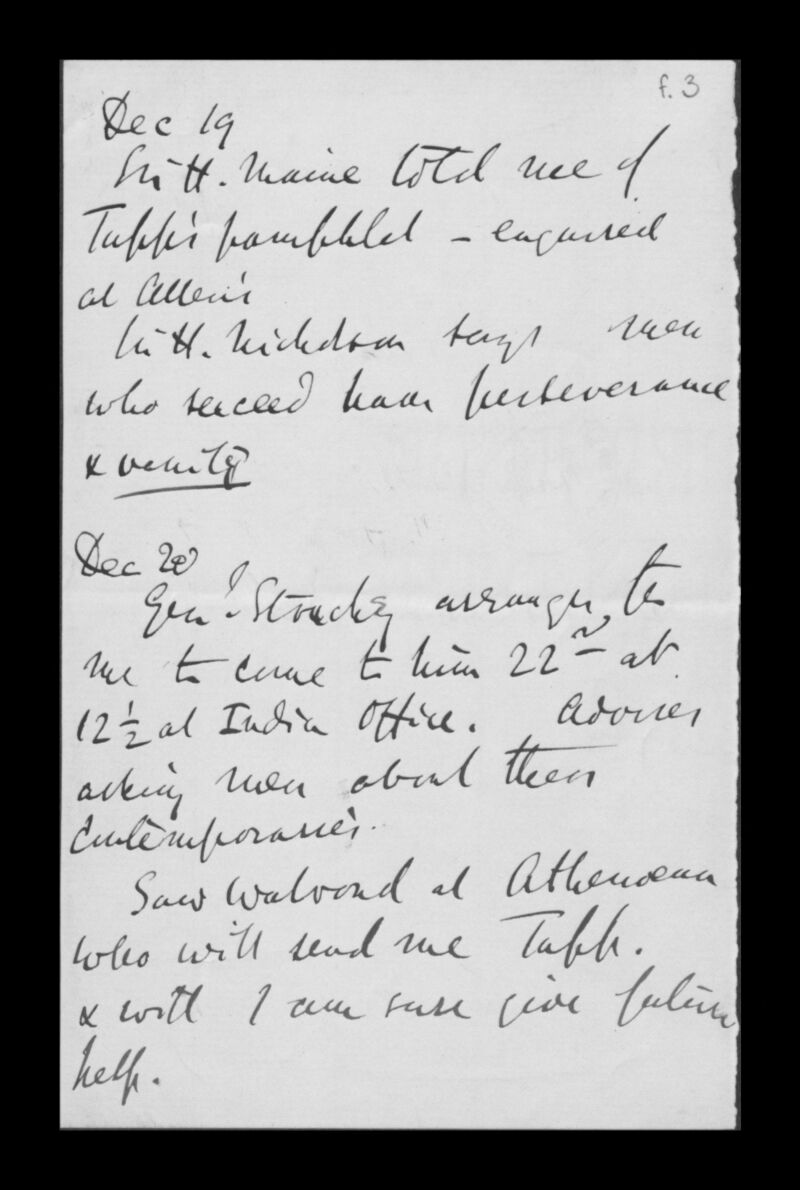 f. 3
Dec 19
Sir H. Maine told me of
Tupp's pamphlet – enquired
at Allen's
Sir H. Nicholson says men
who succeed have perseverance
& vanity
Dec 20
Genl. Strachey arranges for
me to come to him 22nd at
12½ at India Office. Advises
asking men about their
contemporaries.
Saw Walrond at Athenaeum
who will send me Tupp.
& will I am sure give future
help.